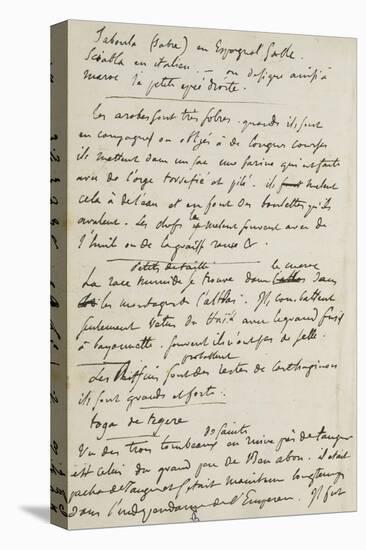 Saboula (Sabre) en Espagnol Sable.
Sciabla en italien. — on désigne ainsi à
maroc la petite épée droite.
les arabes sont très sobres. quand ils sont
en campagne ou obligés à de longues courses
ils mettent dans un sac une farine qui est faite
avec de l'orge torréfié et pilé. ils melent
cela à de l'eau et en font des boulettes qu'ils
avalent. Les chefs la melent souvent avec de
l'huile ou de la graisse rance &
petits de taille le maroc
La race numide se trouve dans dans
les montagnes l'atlas. Ils combattent
seulement vetus du Haïk avec le grand fusil
à bayonnette. Souvent ils n'ont pas de selle.
probablement
Les sont des restes de Carthaginois
ils sont grands et forts.
de Saints
Vu des trois tombeaux en ruine près de tanger
est celui du grand père de Ben abou. il était
pacha de tanger et s'était maintenu longtemps
dans l'indépendance de l'Empereur. Il fut